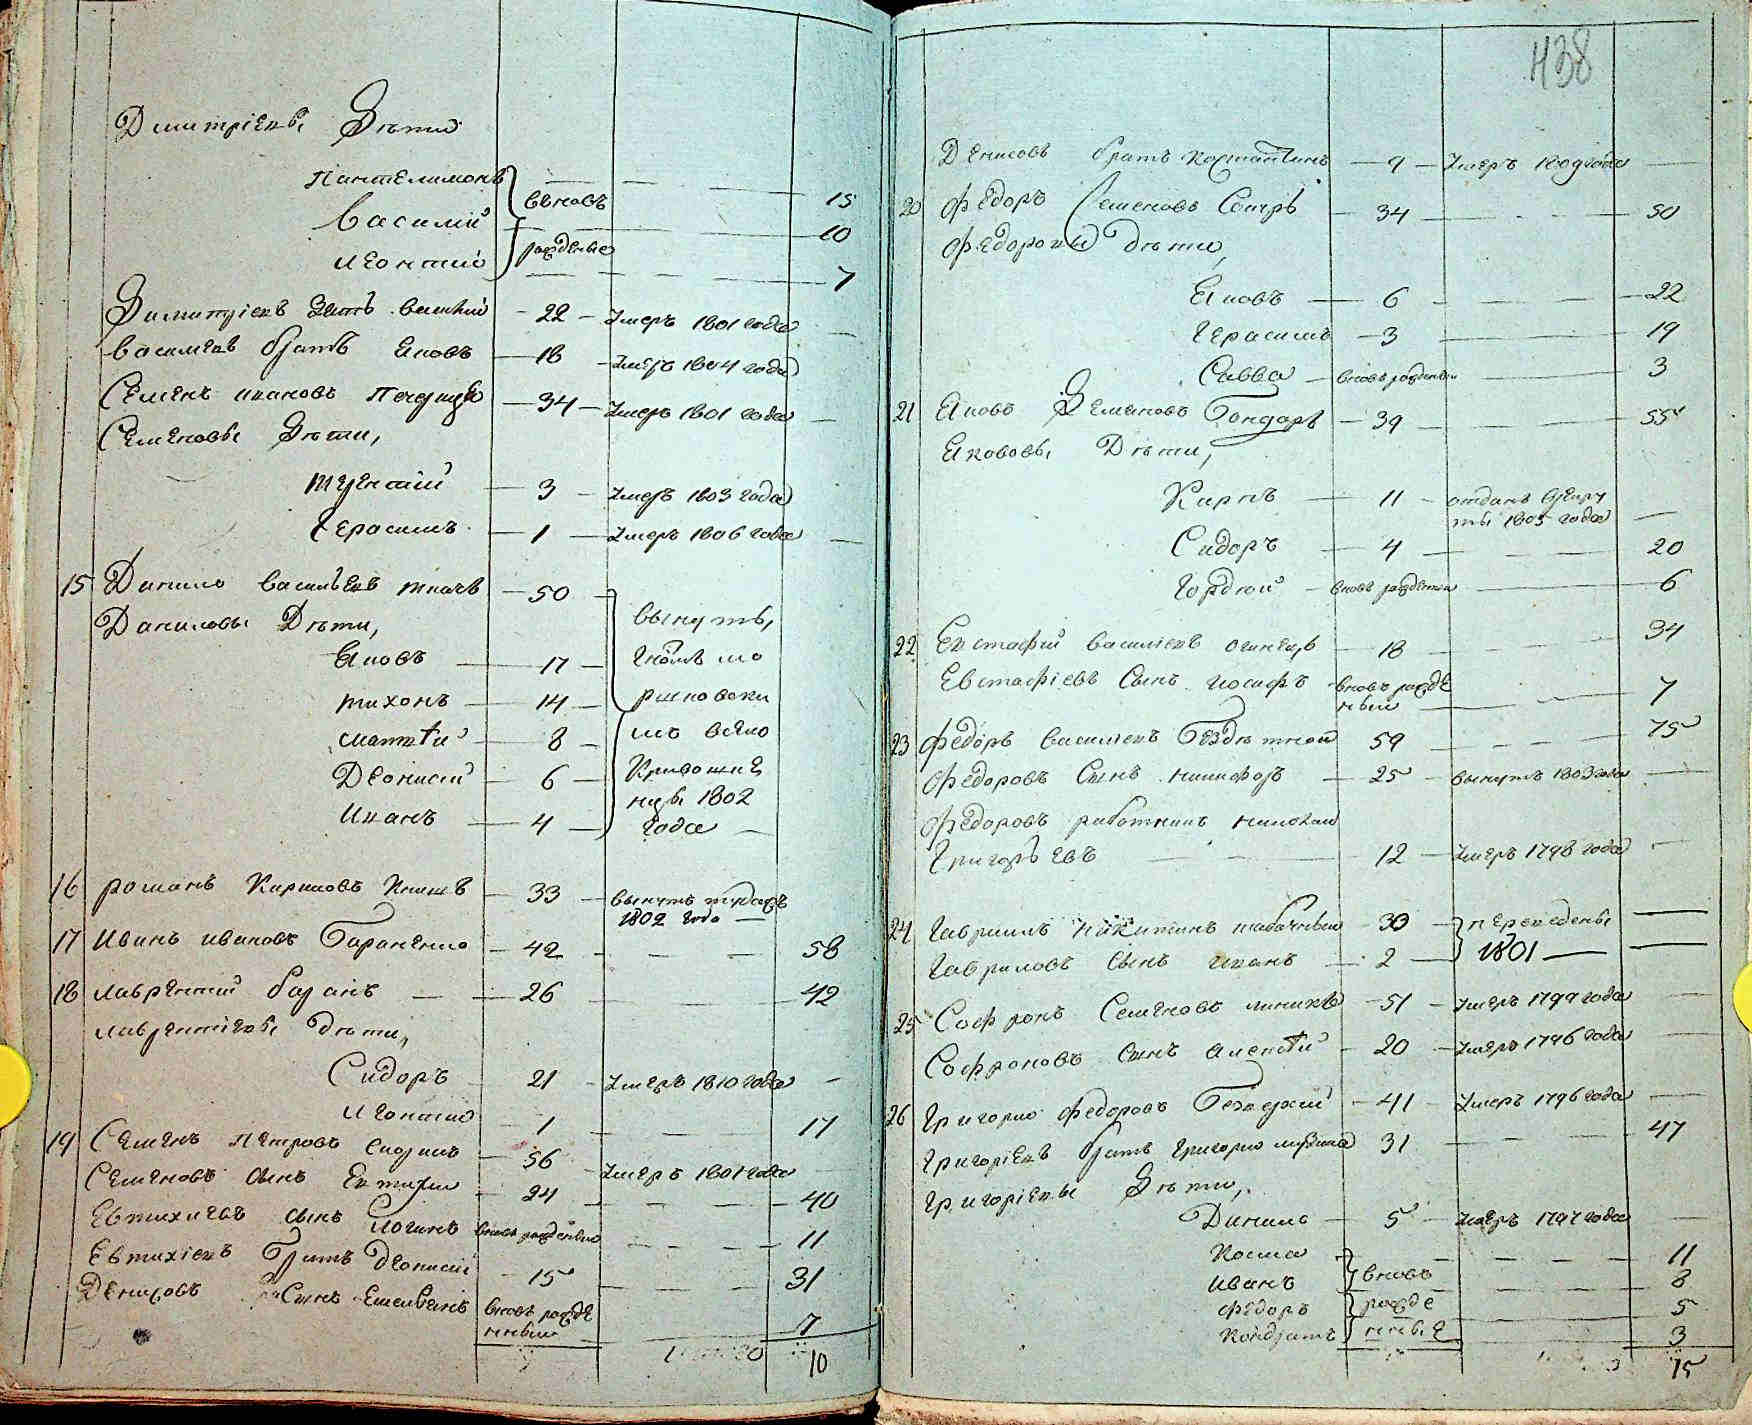 Дмитріевы Дѣти
Пантелимонъ
Василій
вновь
15
10
Леонтій
рожденые
7
Димитріевъ Зять Василій - 22 - Умеръ 1801 года
Васильевъ братъ Яковъ - 18 - Умеръ 1804 года
Семенъ Ивановъ - 34 - Умеръ 1801 года
Семеновы Дѣти,
Терентій - 3 - Умеръ 1803 года
Герасимъ - 1 - Умеръ 1806 года
15 Данило Васильевъ Ткачъ - 50
Даниловы Дѣти,
Яковъ - 17
Тихонъ - 14
Матвѣй - 8
Деонисій - 6
Иванъ - 4
1802
года
16 Романъ Кириловъ - 33 -
1802 года
17 Иванъ Ивановъ Бараненко - 42 - 58
18 Лаврентій Баранъ - 26 - 42
Лаврентіевы Дѣти,
Сидоръ - 21 - Умеръ 1810 года
Леонтій - 1 - 17
19 Семенъ Петровъ - 56 - Умеръ 1801 года
Семеновъ сынъ Евтихій - 24 - 40
Евтихіевъ сынъ Логинъ вновь рожденый 11
Евтихіевъ Братъ Деонисій - 15 - 31
Денисовъ Сынъ Емельянъ вновь рожде
нный 7
10
438
Денисовъ братъ Костантинъ - 9 - Умеръ 1809 года
20 Федоръ Семеновъ - 34 - 50
Федоровы Дѣти,
Яковъ - 6 - 22
Герасимъ - 3 - 19
Савва - вновь рожденый 3
21 Яковъ Семеновъ Бондарь - 39 - 55
Якововы Дѣти,
Карпъ - 11 - отданъ врекру
ты 1805 года
Сидоръ - 4 - 20
Гордѣй - вновь рожденый 6
22 Евстафій Василіевъ - 18 - 34
Евстафіевъ Сынъ Иосифъ вновь рожде
нный 7
23 Федоръ Василіевъ Бездѣтной 59 - 75
Федоровъ Сынъ Никифоръ - 25 - 1803 года
Федоровъ работникъ Николай
Григорьевъ - 12 - Умеръ 1798 года
24 Гавриилъ Никитинъ Табачный - 30 - переведены
Гавриловъ сынъ Иванъ - 2 - 1801
25 Софронъ Семеновъ - 51 - Умеръ 1799 года
Софроновъ Сынъ Алексѣй - 20 - Умеръ 1796 года
26 Григорій Федоровъ - 41 - Умеръ 1796 года
Григоріевъ братъ Григорій 31 - 47
Григоріевы Дѣти,
Данило - 5 - Умеръ 1797 года
Косма 11
Иванъ вновь 8
Федоръ рожде 5
Кондратъ нные 3
15